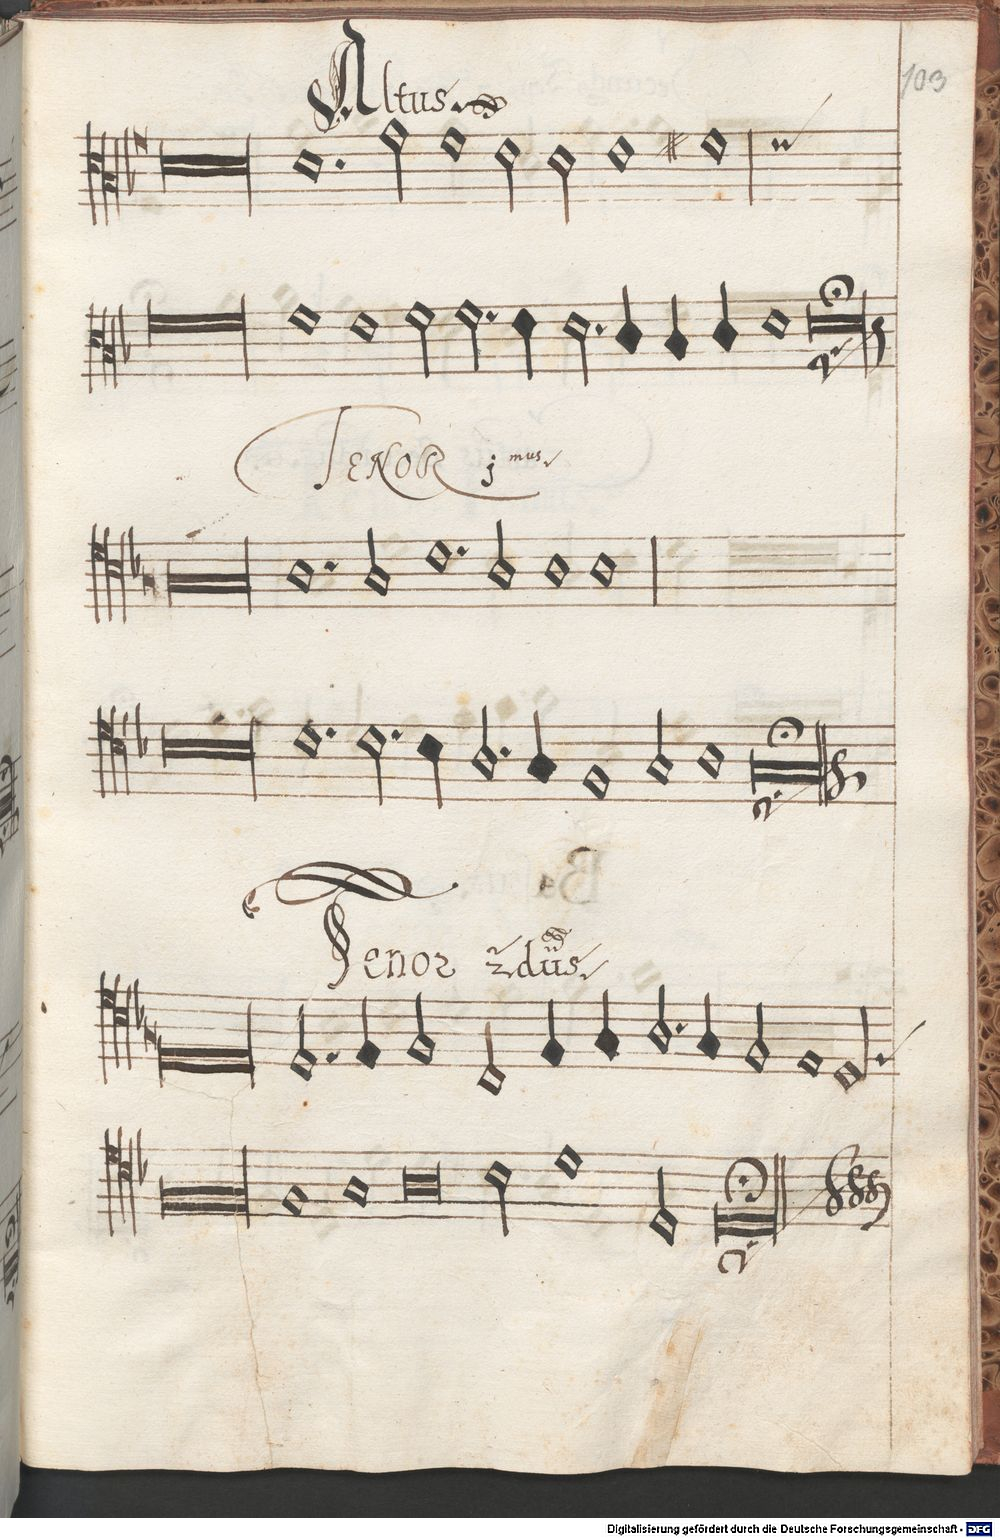 103
Altus
TENOR j mus
Tenor 2dus
Digitalisierung gefördert durch die Deutsche Forschungsgemeinschaft - DFG